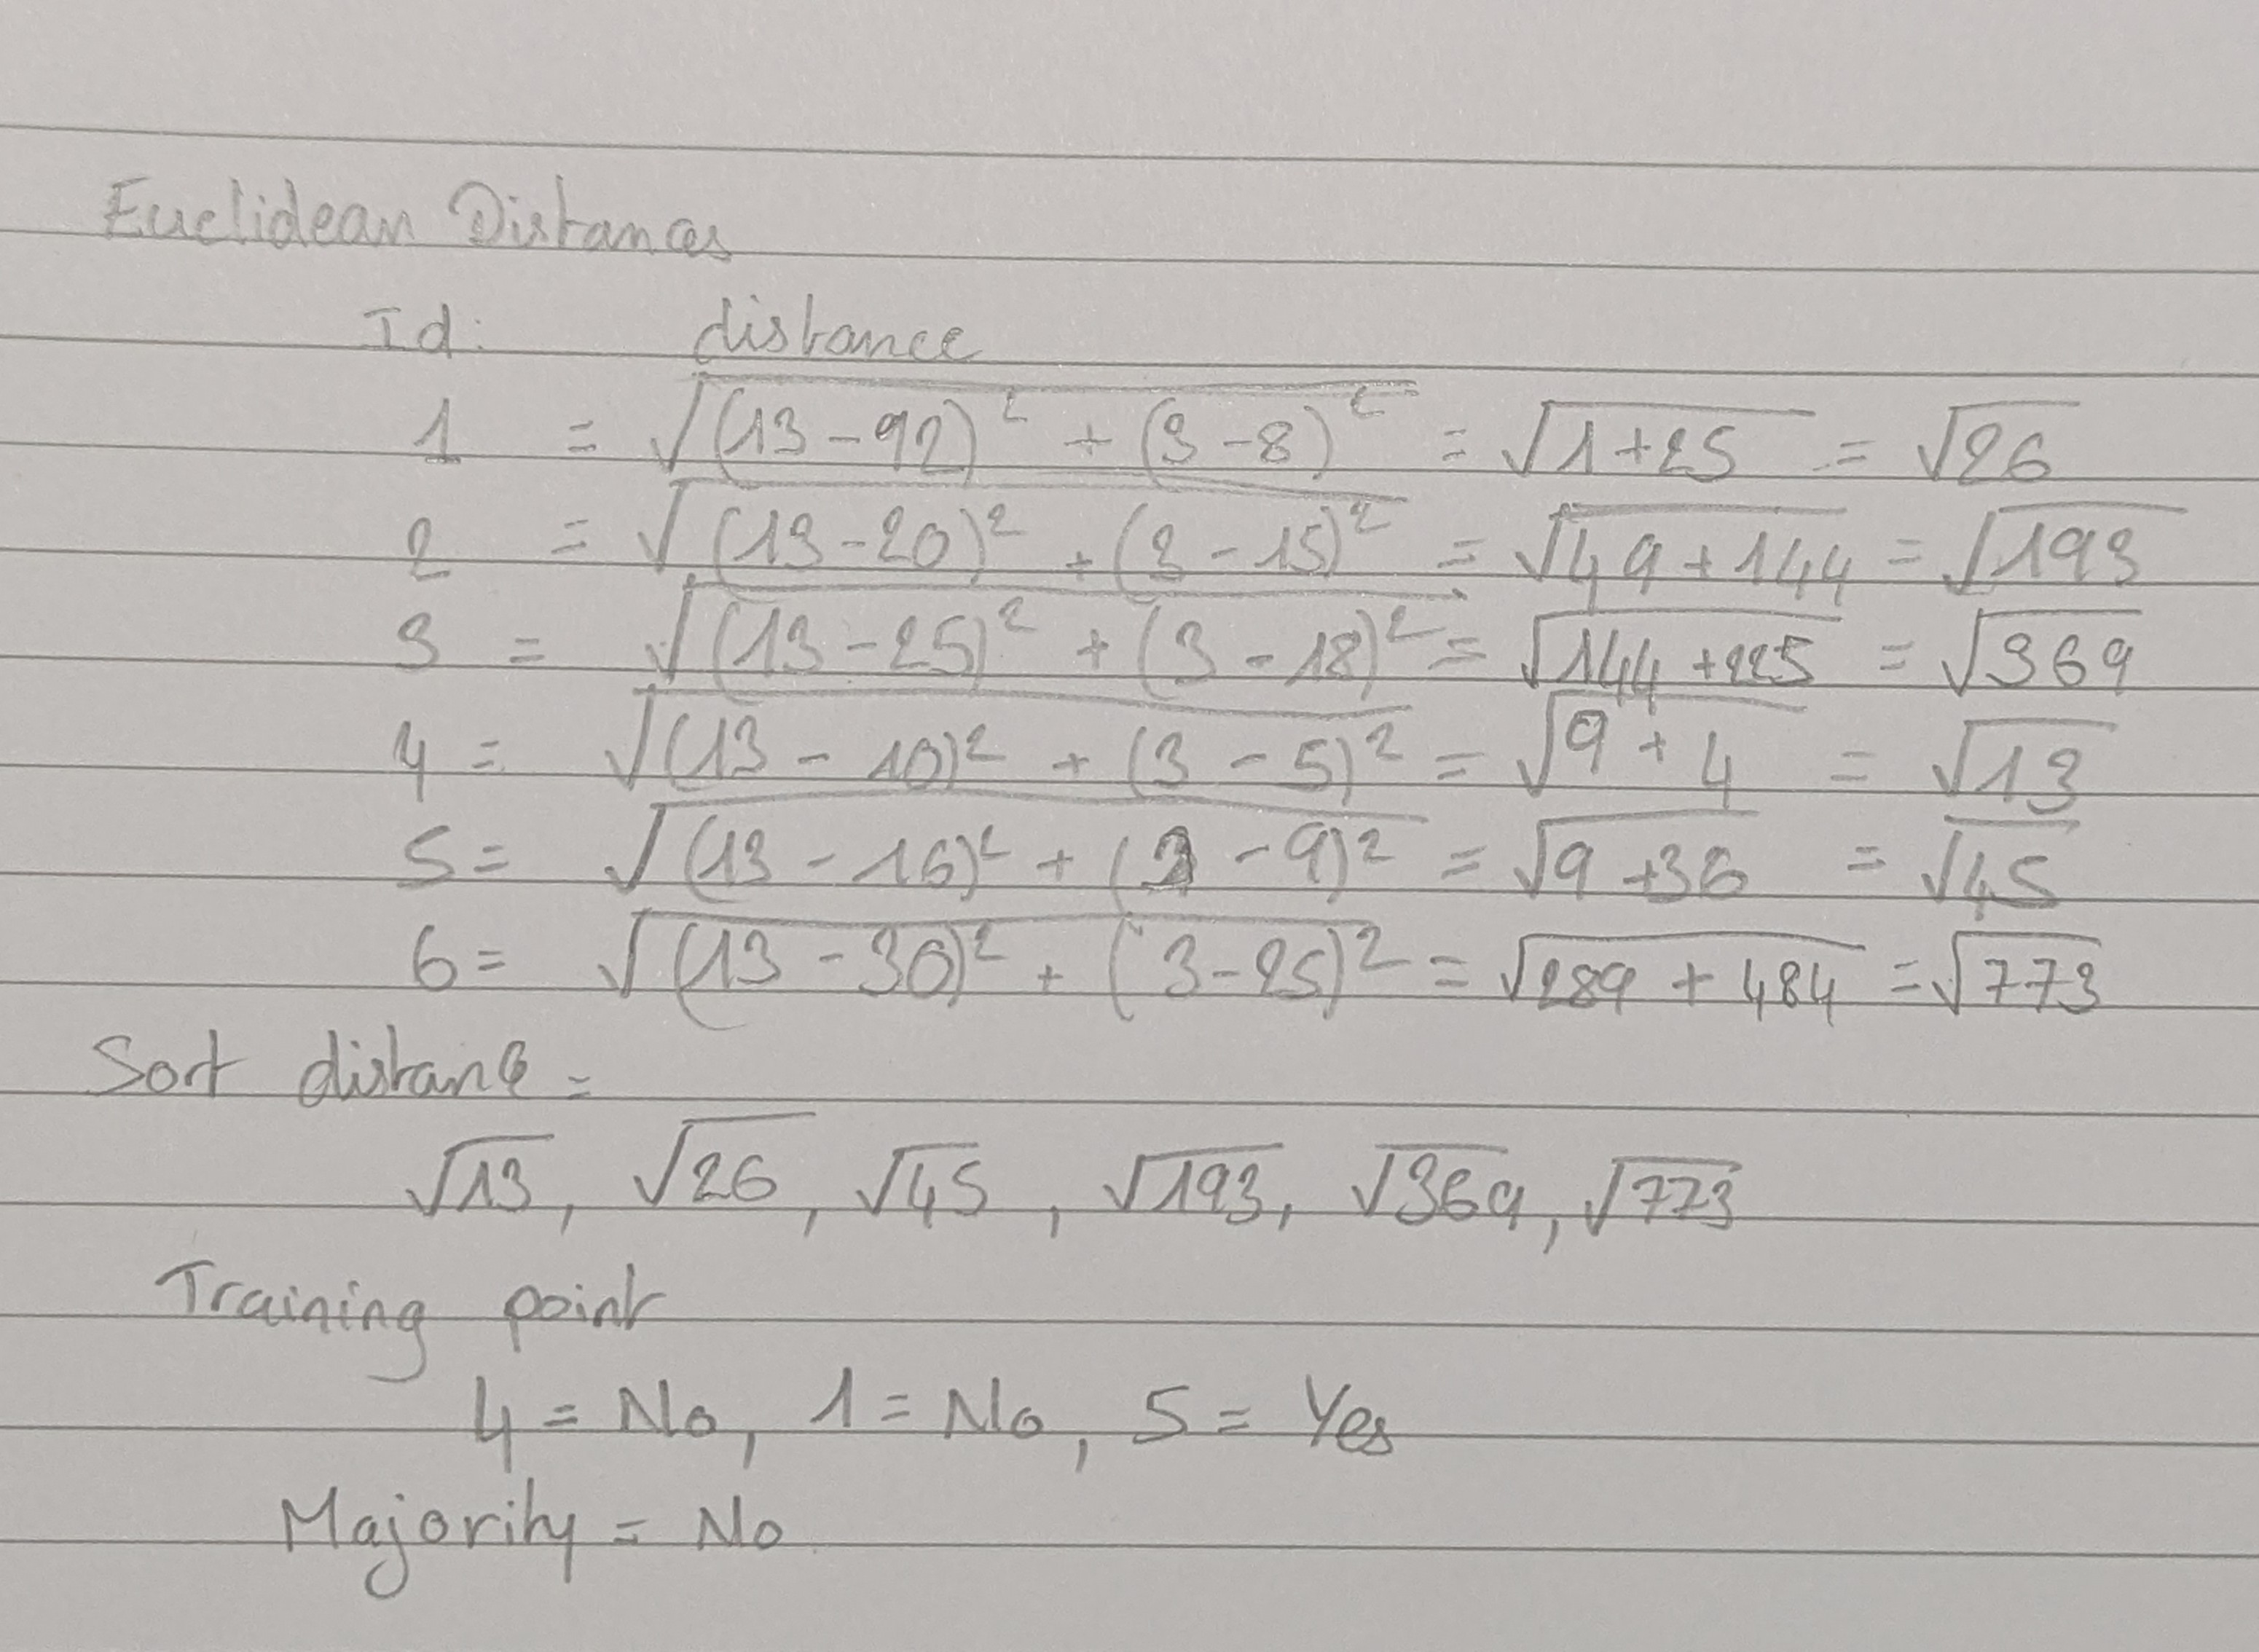 Euclidean Distances
Id: distance
1 = √(13-92)² + (3-8)² = √1+25 = √26
2 = √(13-20)² + (3-15)² = √49+144 = √193
3 = √(13-25)² + (3-18)² = √144+225 = √369
4 = √(13-10)² + (3-5)² = √9+4 = √13
5 = √(13-16)² + (3-9)² = √9+36 = √45
6 = √(13-30)² + (3-25)² = √289+484 = √773
Sort distance =
√13, √26, √45, √193, √369, √773
Training point
4 = No, 1 = No, 5 = Yes
Majority = No